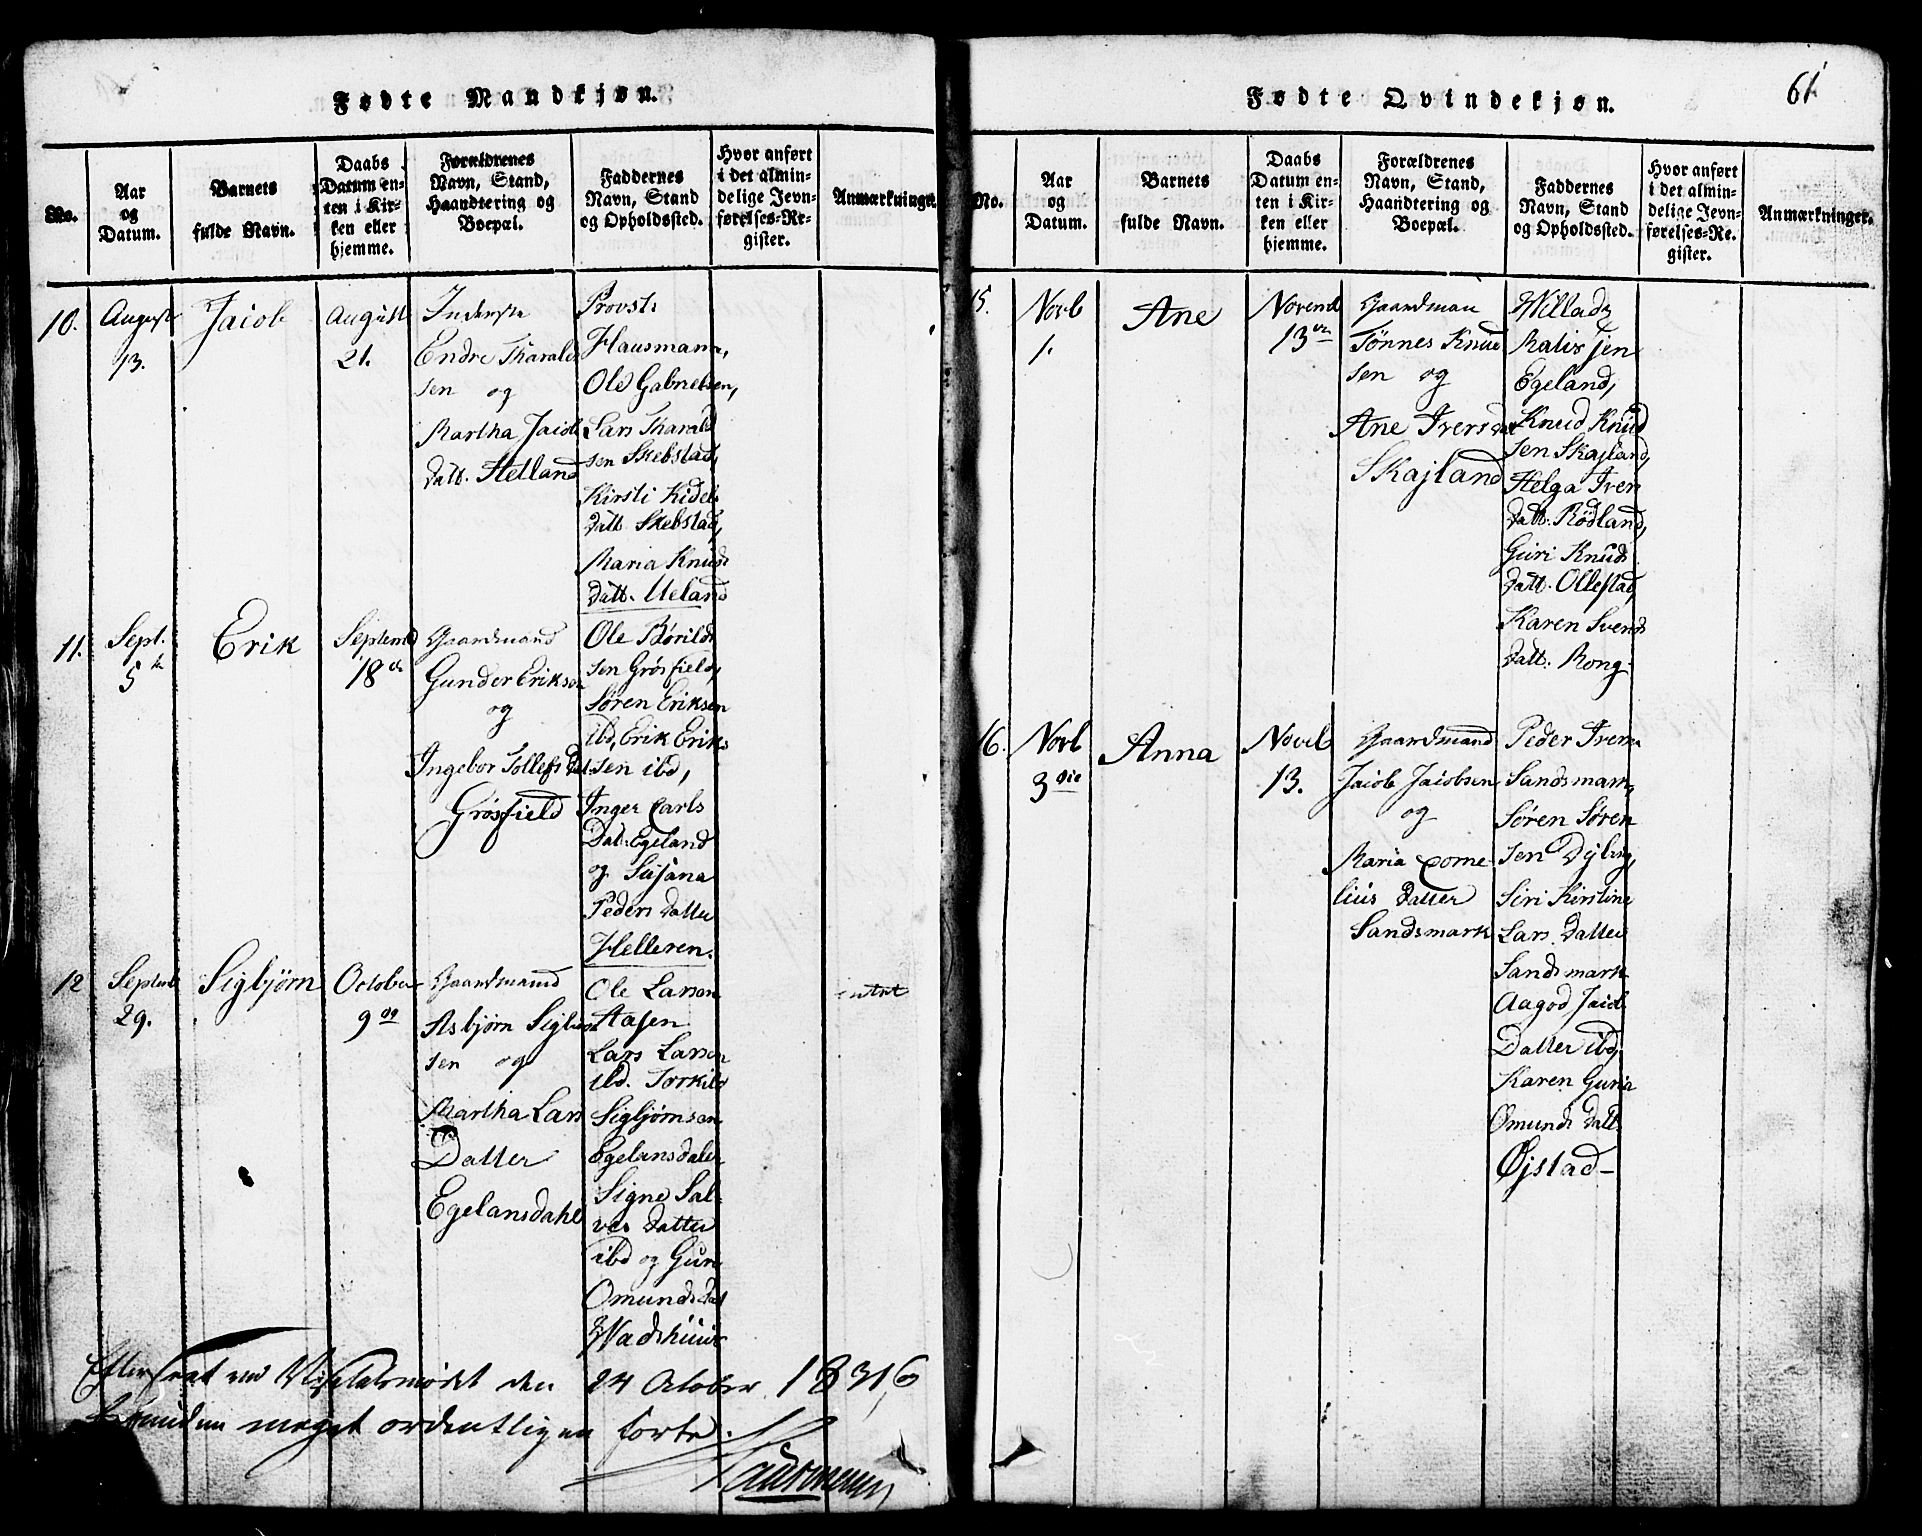 Fødte Mandkjøn.
No.
Aar
og
Datum.
Barnets
fulde Navn.
Daabs
Datum en-
ten i Kir-
ken eller
hjemme.
Forældrenes
Navn, Stand,
Haandtering og
Boepæl.
Faddernes
Navn, Stand
og Opholdssted.
Hvor anført
i det almin-
delige Jevn-
førelses-Re-
gister.
Anmærkninger.
10.
August
13.
Jacob
August
21.
Inderste
Endre Tharald
sen og
Martha Jacob
datt. Helland
Provst
Hausmann,
Ole Gabrielsen,
Lars Tharald
sen Skebstad,
Kirsti Kidel
datt. Skebstad,
Maria Knuds
datt. Ueland
11.
Sept.
5
Erik
Septemb
18
Gaardmand
Gunder Erikson
og
Ingebor Tollefs dat.
Grøsfield
Ole Børild
sen Grøsfield,
Søren Eriksen
ibd, Erik Erik
sen ibd,
Inger Carls
Dat. Egeland
og Susana
Peders datter
Helleren.
12
Septemb
29.
Sigbjørn
October
9
Gaardmand
Asbjørn Sigbiørn
sen og
Martha Lars
Datter
Egelansdahl
Ole Larsen
Aasen
Lars Larsen
ibd. Torkild
Sigbjørnsen
Egelansdalen
Signe Sal-
ves datter
ibd og Guri
Omunds dat
Wadshuus
Efterseet ved Visitatsmødet den 24 October 1836
meget ordentligen ført.
Hausmann
61
Fødte Qvindekjøn.
No.
Aar
og
Datum.
Barnets
fulde Navn.
Daabs
Datum en-
ten i Kir-
ken eller
hjemme.
Forældrenes
Navn, Stand,
Haandtering og
Boepæl.
Faddernes
Navn, Stand
og Opholdssted.
Hvor anført
i det almin-
delige Jevn-
førelses-Re-
gister.
Anmærkninger.
15.
Novb
1.
Ane
Novemb
13
Gaardman
Tönnes Knud
sen og
Ane Ivers dat
Skajland
Willads
Malisjen
Egeland,
Knud Knud
sen Skajland,
Helga Iver
datt. Rödland,
Guri Knuds
datt. Ollestad,
Karen Svends
datt. Rong
16.
Novb
3die
Anna
Novb
13.
Gaardmand
Jacob Jacobsen
og
Maria Corne
lius datter
Sandsmark
Peder Ivers
Sandsmark,
Søren Søren
sen Dybing,
Siri Kirstine
Lars Datter
Sandsmark
Aagod Jacob
Datter ibd,
Karen Guria
Omunds datt.
Øjstad